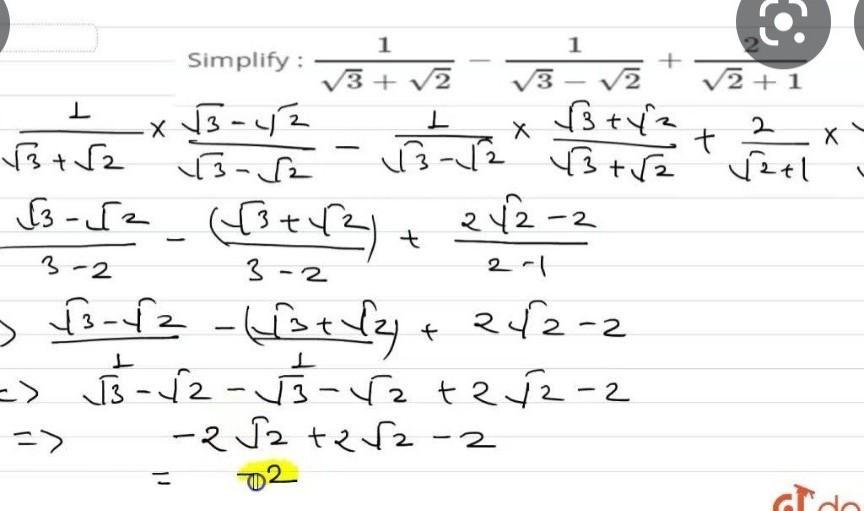 Simplify : 1/(√3 + √2) − 1/(√3 − √2) + 2/(√2 + 1)
1/(√3 + √2) × (√3 − √2)/(√3 − √2) − 1/(√3 − √2) × (√3 + √2)/(√3 + √2) + 2/(√2 + 1) ×
(√3 − √2)/(3 − 2) − (√3 + √2)/(3 − 2) + (2√2 − 2)/(2 − 1)
(√3 − √2)/1 − (√3 + √2)/1 + 2√2 − 2
=> √3 − √2 − √3 − √2 + 2√2 − 2
=> −2√2 + 2√2 − 2
= −2